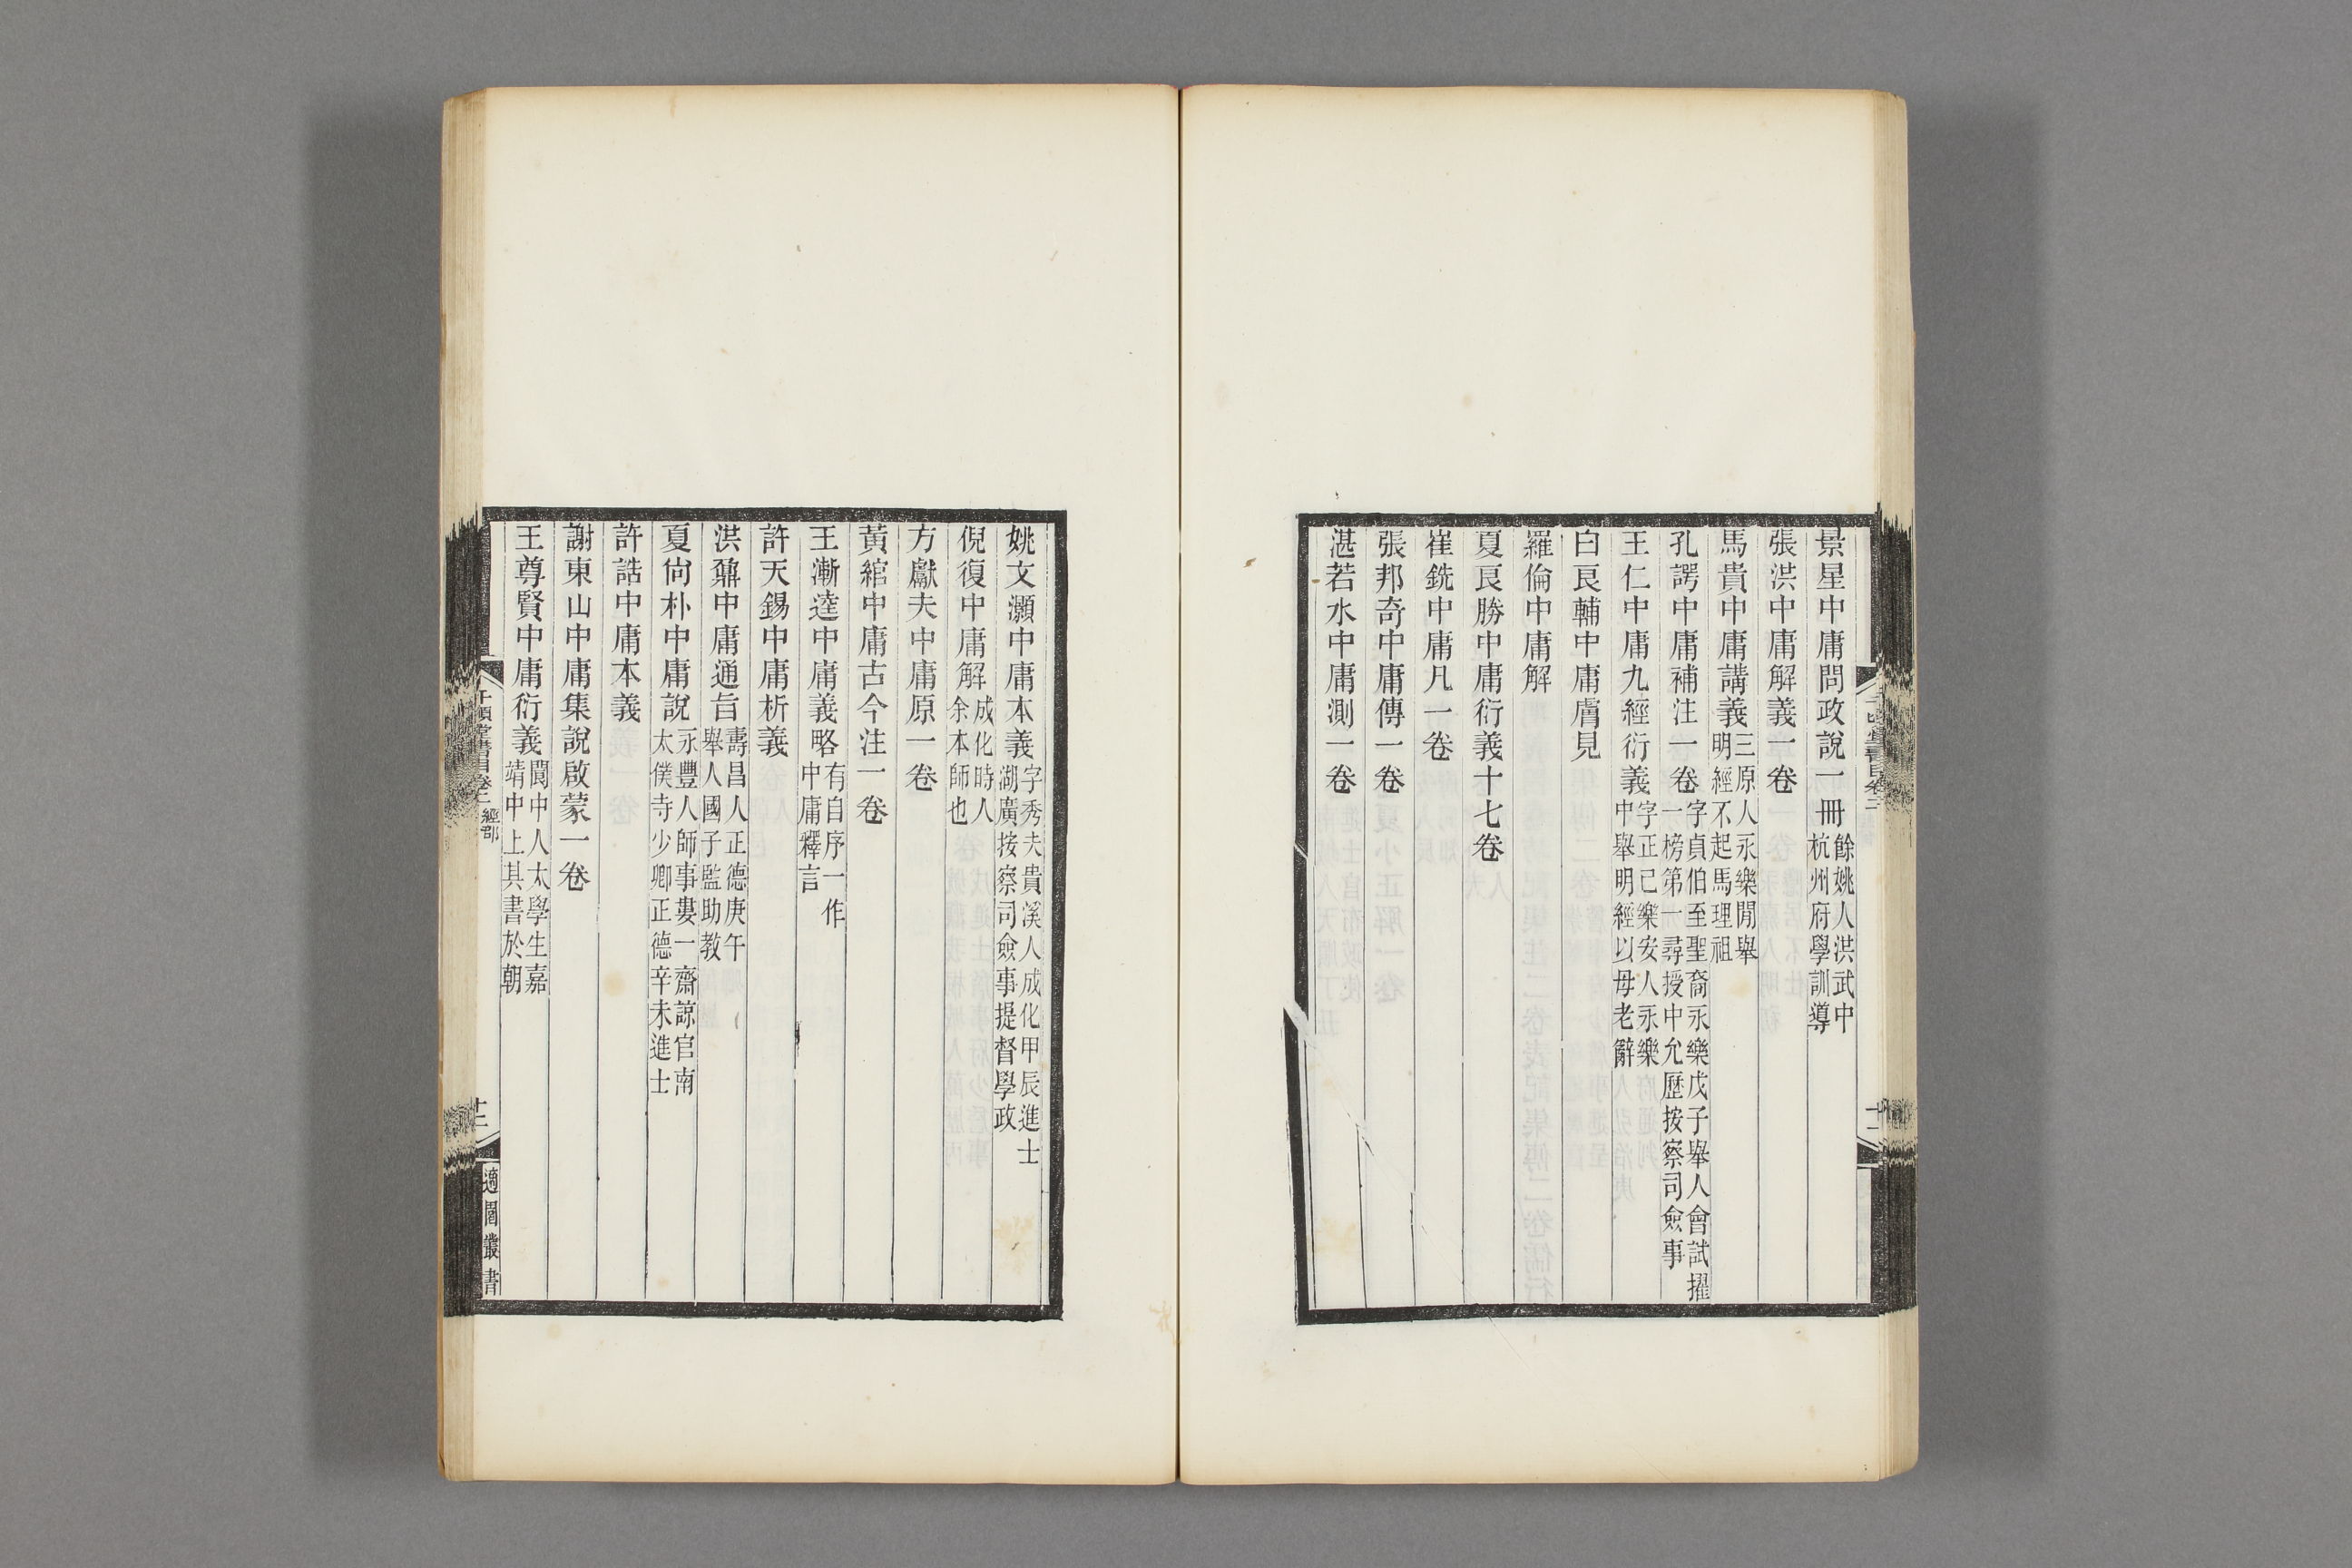 景星中庸問政說一冊餘姚人洪武中杭州府學訓導
張洪中庸解義一卷
馬貴中庸講義三原人永樂閒舉明經不起馬理祖
孔諤中庸補注一卷字貞伯至聖裔永樂戊子舉人會試擢一榜第一尋授中允歷按察司僉事
王仁中庸九經衍義字正己樂安人永樂中舉明經以母老辭
白良輔中庸膚見
羅倫中庸解
夏良勝中庸衍義十七卷
崔銑中庸凡一卷
張邦奇中庸傳一卷
湛若水中庸測一卷
姚文灝中庸本義字秀夫貴溪人成化甲辰進士湖廣按察司僉事提督學政
倪復中庸解成化時人余本師也
方獻夫中庸原一卷
黃綰中庸古今注一卷
王漸逵中庸義略有自序一作中庸釋言
許天錫中庸析義
洪鼐中庸通旨壽昌人正德庚午舉人國子監助教
夏尙朴中庸說永豐人師事婁一齋諒官南太僕寺少卿正德辛未進士
許誥中庸本義
謝東山中庸集說啟蒙一卷
王尊賢中庸衍義閬中人太學生嘉靖中上其書於朝
千頃堂書目卷二 經部
十二
適園叢書